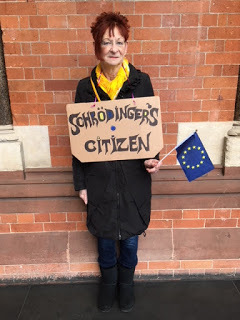 SCHRÖDINGER'S
CITIZEN